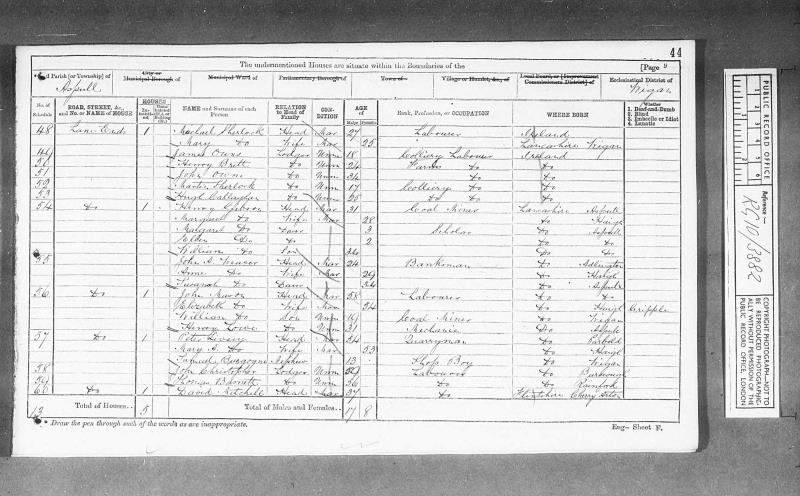 44
The undermentioned Houses are situate within the Boundaries of the
[Page 9
Civil Parish [or Township] of
City or Municipal Borough of
Municipal Ward of
Parliamentary Borough of
Town of
Village or Hamlet, &c., of
Local Board, or [Improvement Commissioners District] of
Ecclesiastical District of
Aspull
Wigan
No. of Schedule
ROAD, STREET, &c., and No. or NAME of HOUSE
HOUSES
NAME and Surname of each Person
RELATION to Head of Family
CONDITION
AGE of
Males
Females
Rank, Profession, or OCCUPATION
WHERE BORN
Whether
1. Deaf-and-Dumb
2. Blind
3. Imbecile or Idiot
4. Lunatic
48 Lane End 1 Michael Sherlock Head Mar 27 Labourer Ireland
Mary Do Wife Mar 25 Lancashire Wigan
James Owns Lodger Unm 18 Colliery Labourer Ireland
50 Henry Brett Do Unm 24 Farm Do Do
51 John Owns Do Unm 34 Do Do
52 Martin Sherlock Do Unm 17 Colliery Do Do
53 Hugh Callagher Do Unm 25 Do Do Do
54 Do 1 Henry Gibson Head Mar 31 Coal Miner Lancashire Aspull
Margaret Do Wife Mar 28 Do Haigh
Margaret Do Daur 3 Scholar Do Aspull
Ellen Do Do 2 Do Do
William Do Son Do Do
55 John Head Mar 24 Banksman Do Adlington
Anne Do Wife Mar 29 Do Haigh
Do Daur Do Aspull
56 Do 1 John Head Mar 58 Labourer Do Do
Elizabeth Do Wife Mar Do Haigh Cripple
William Do Son Unm 19 Coal Miner Do Wigan
Henry Lowe Do Unm 31 Mechanic Do Aspull
57 Do 1 Peter Head Mar 54 Quarryman Do Parbold
Mary A. Do Wife Mar 53 Do Haigh
Samuel Burgogne Nephew 13 Shop Boy Do Wigan
58 John Christopher Lodger Unm 59 Labourer Do Burscough
59 Thomas Do Unm 36 Do Do Rainford
60 Do 1 David Mitchell Head Mar 37 Do Flintshire
13 Total of Houses.. 5 Total of Males and Females.. 17 8
* Draw the pen through such of the words as are inappropriate.
Eng- Sheet F.
PUBLIC RECORD OFFICE
1 2 3 4 5 6
Reference:-
RG 10/3882
COPYRIGHT PHOTOGRAPH-NOT TO BE REPRODUCED PHOTOGRAPHICALLY WITHOUT PERMISSION OF THE PUBLIC RECORD OFFICE, LONDON